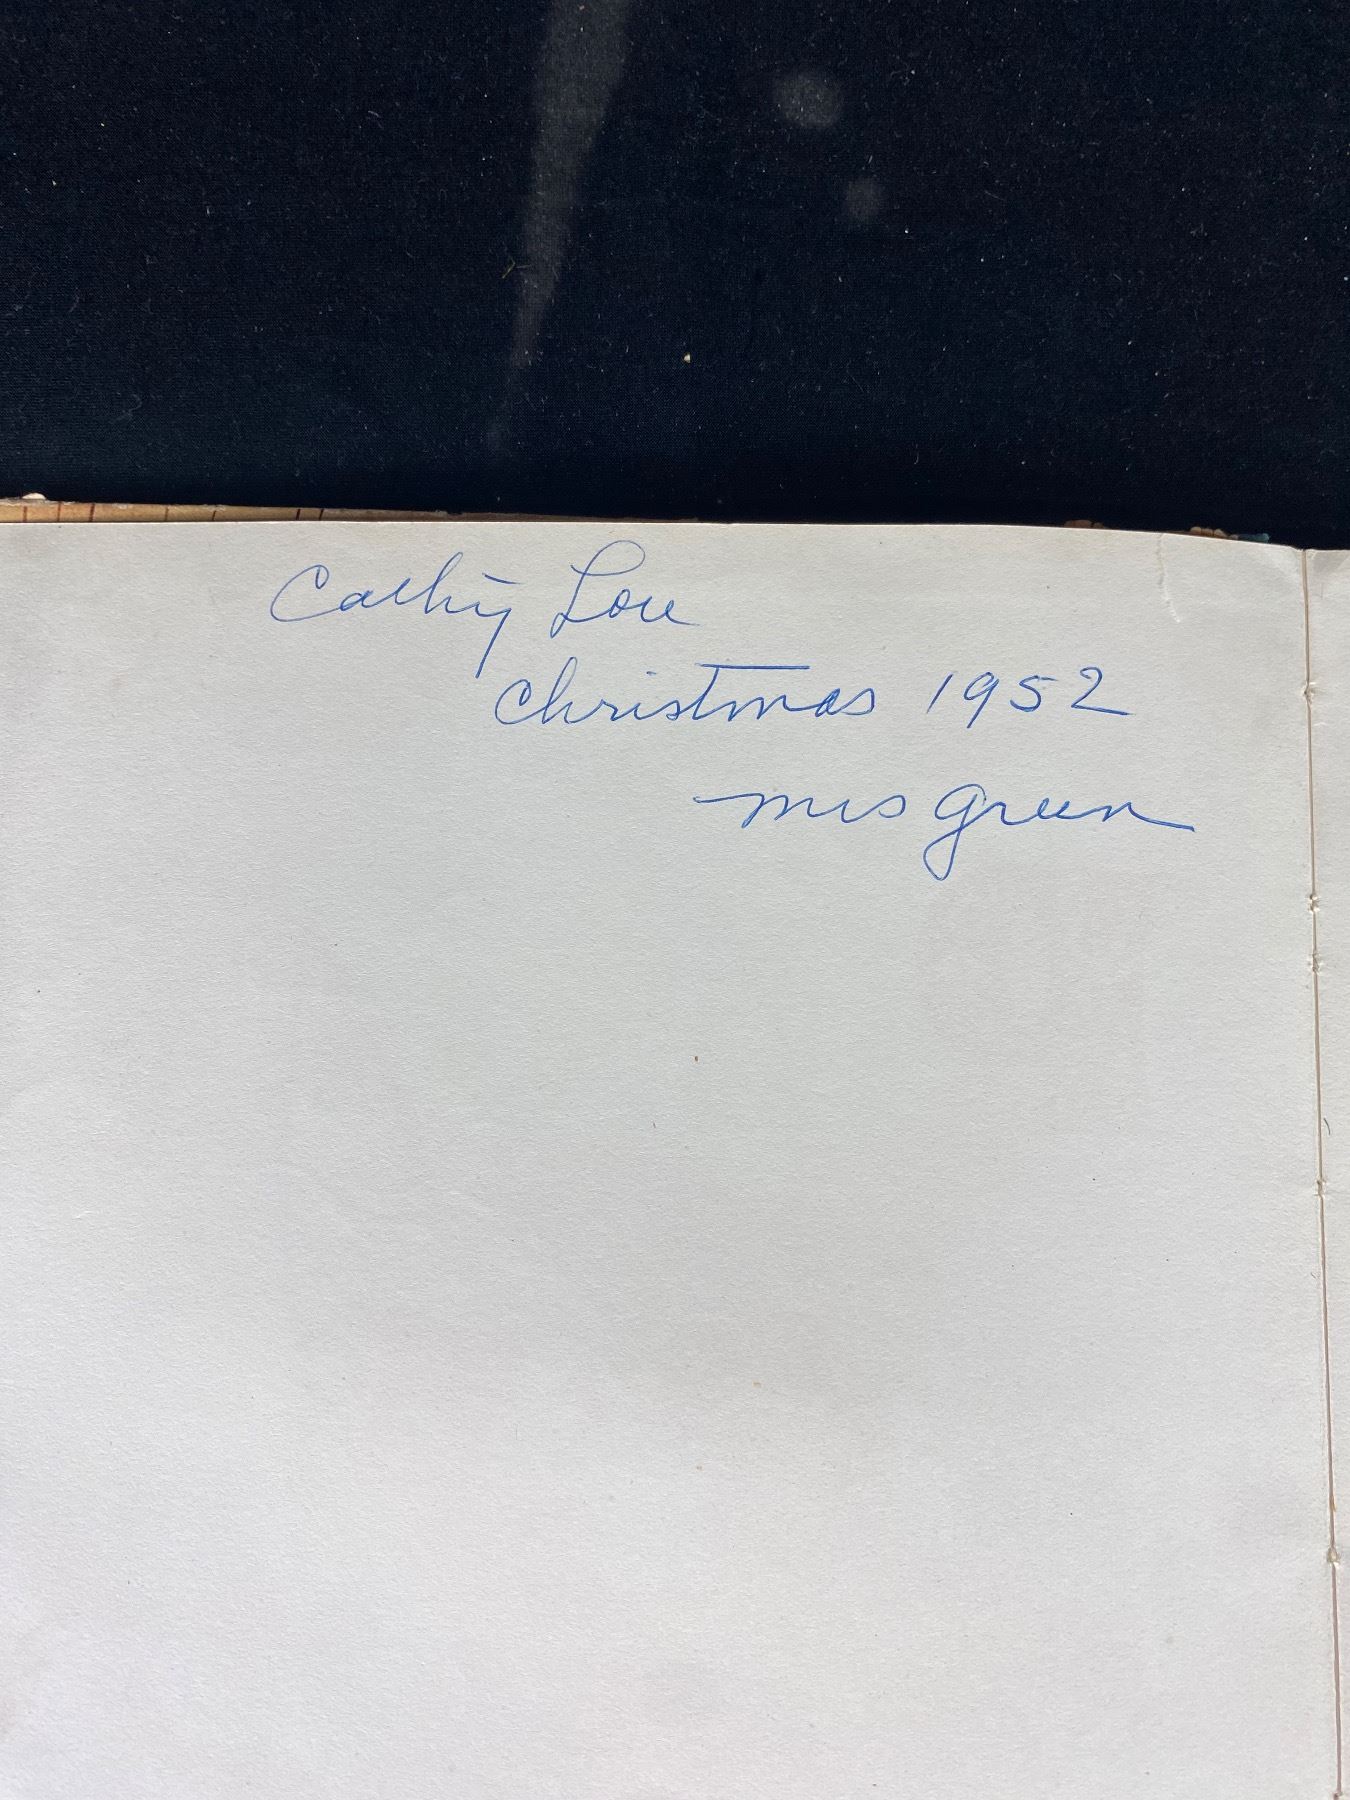 Cathy Lou
Christmas 1952
Mrs Green